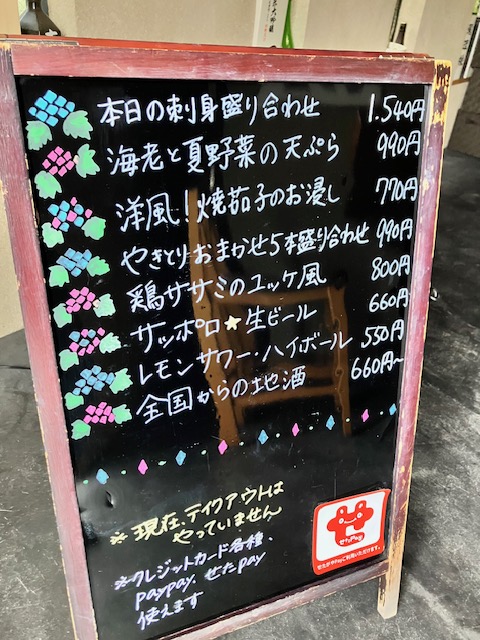 本日の刺身盛り合わせ 1.540円
海老と夏野菜の天ぷら 990円
洋風！焼茄子のお浸し 770円
やきとりおまかせ5本盛り合わせ 990円
鶏ササミのユッケ風 800円
サッポロ★生ビール 660円
レモンサワー・ハイボール 550円
全国からの地酒 660円~
※現在、テイクアウトは
やっていません
※クレジットカード各種、
paypay、せたpay
使えます
せたPay
せたがやPayご利用いただけます。